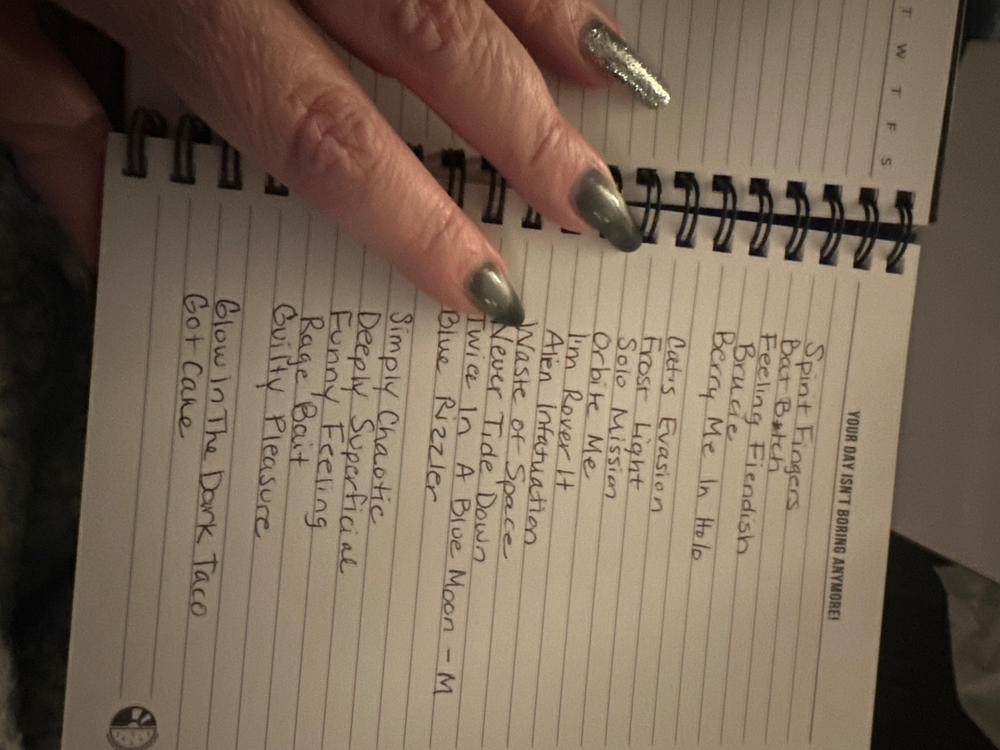 T W T F S
YOUR DAY ISN'T BORING ANYMORE!
Spirit Fingers
Boat B*tch
Feeling Fiendish
Brucie
Berry Me In Holo
Cat's Evasion
Frost Light
Solo Mission
Orbite Me
I'm Rover It
Alien Infatuation
Waste of Space
Never Tide Down
Twice In A Blue Moon - M
Blue Rizzler
Simply Chaotic
Deeply Superficial
Funny Feeling
Rage Bait
Guilty Pleasure
Glow In The Dark Taco
Got Cane